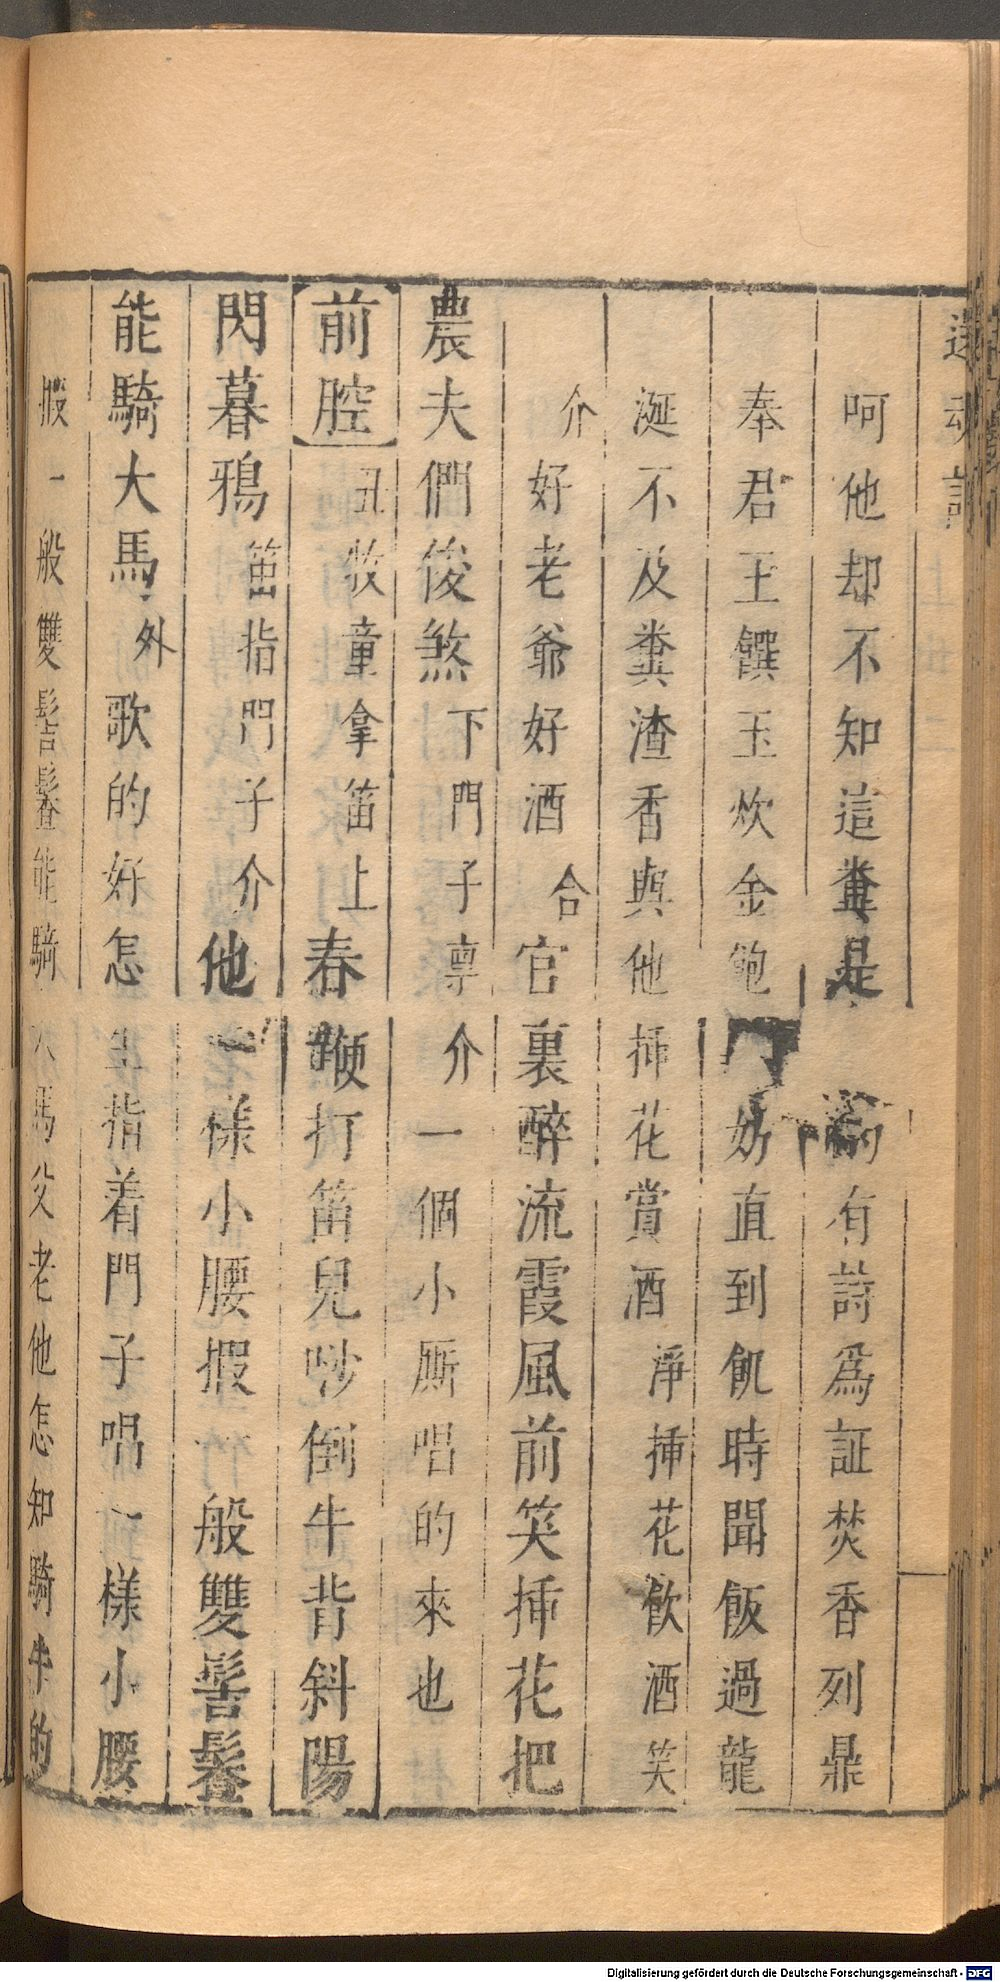 還魂記
呵他却不知這糞是 有詩為証焚香列鼎
奉君王饌玉炊金飽 妨直到飢時聞飯過龍
涎不及糞渣香與他揷花賞酒淨揷花飲酒笑
介好老爺好酒合官裏醉流霞風前笑揷花把
農夫們俊煞下門子稟介一個小厮唱的來也
前腔丑牧童拿笛上春鞭打笛兒吵倒牛背斜陽
閃暮鴉笛指門子介他一樣小腰𢬵一般雙髻鬖
能騎大馬外歌的好怎生指着門子唱一樣小腰
一般雙髻鬖能騎大馬父老他怎知騎牛的
Digitalisierung gefördert durch die Deutsche Forschungsgemeinschaft - DFG